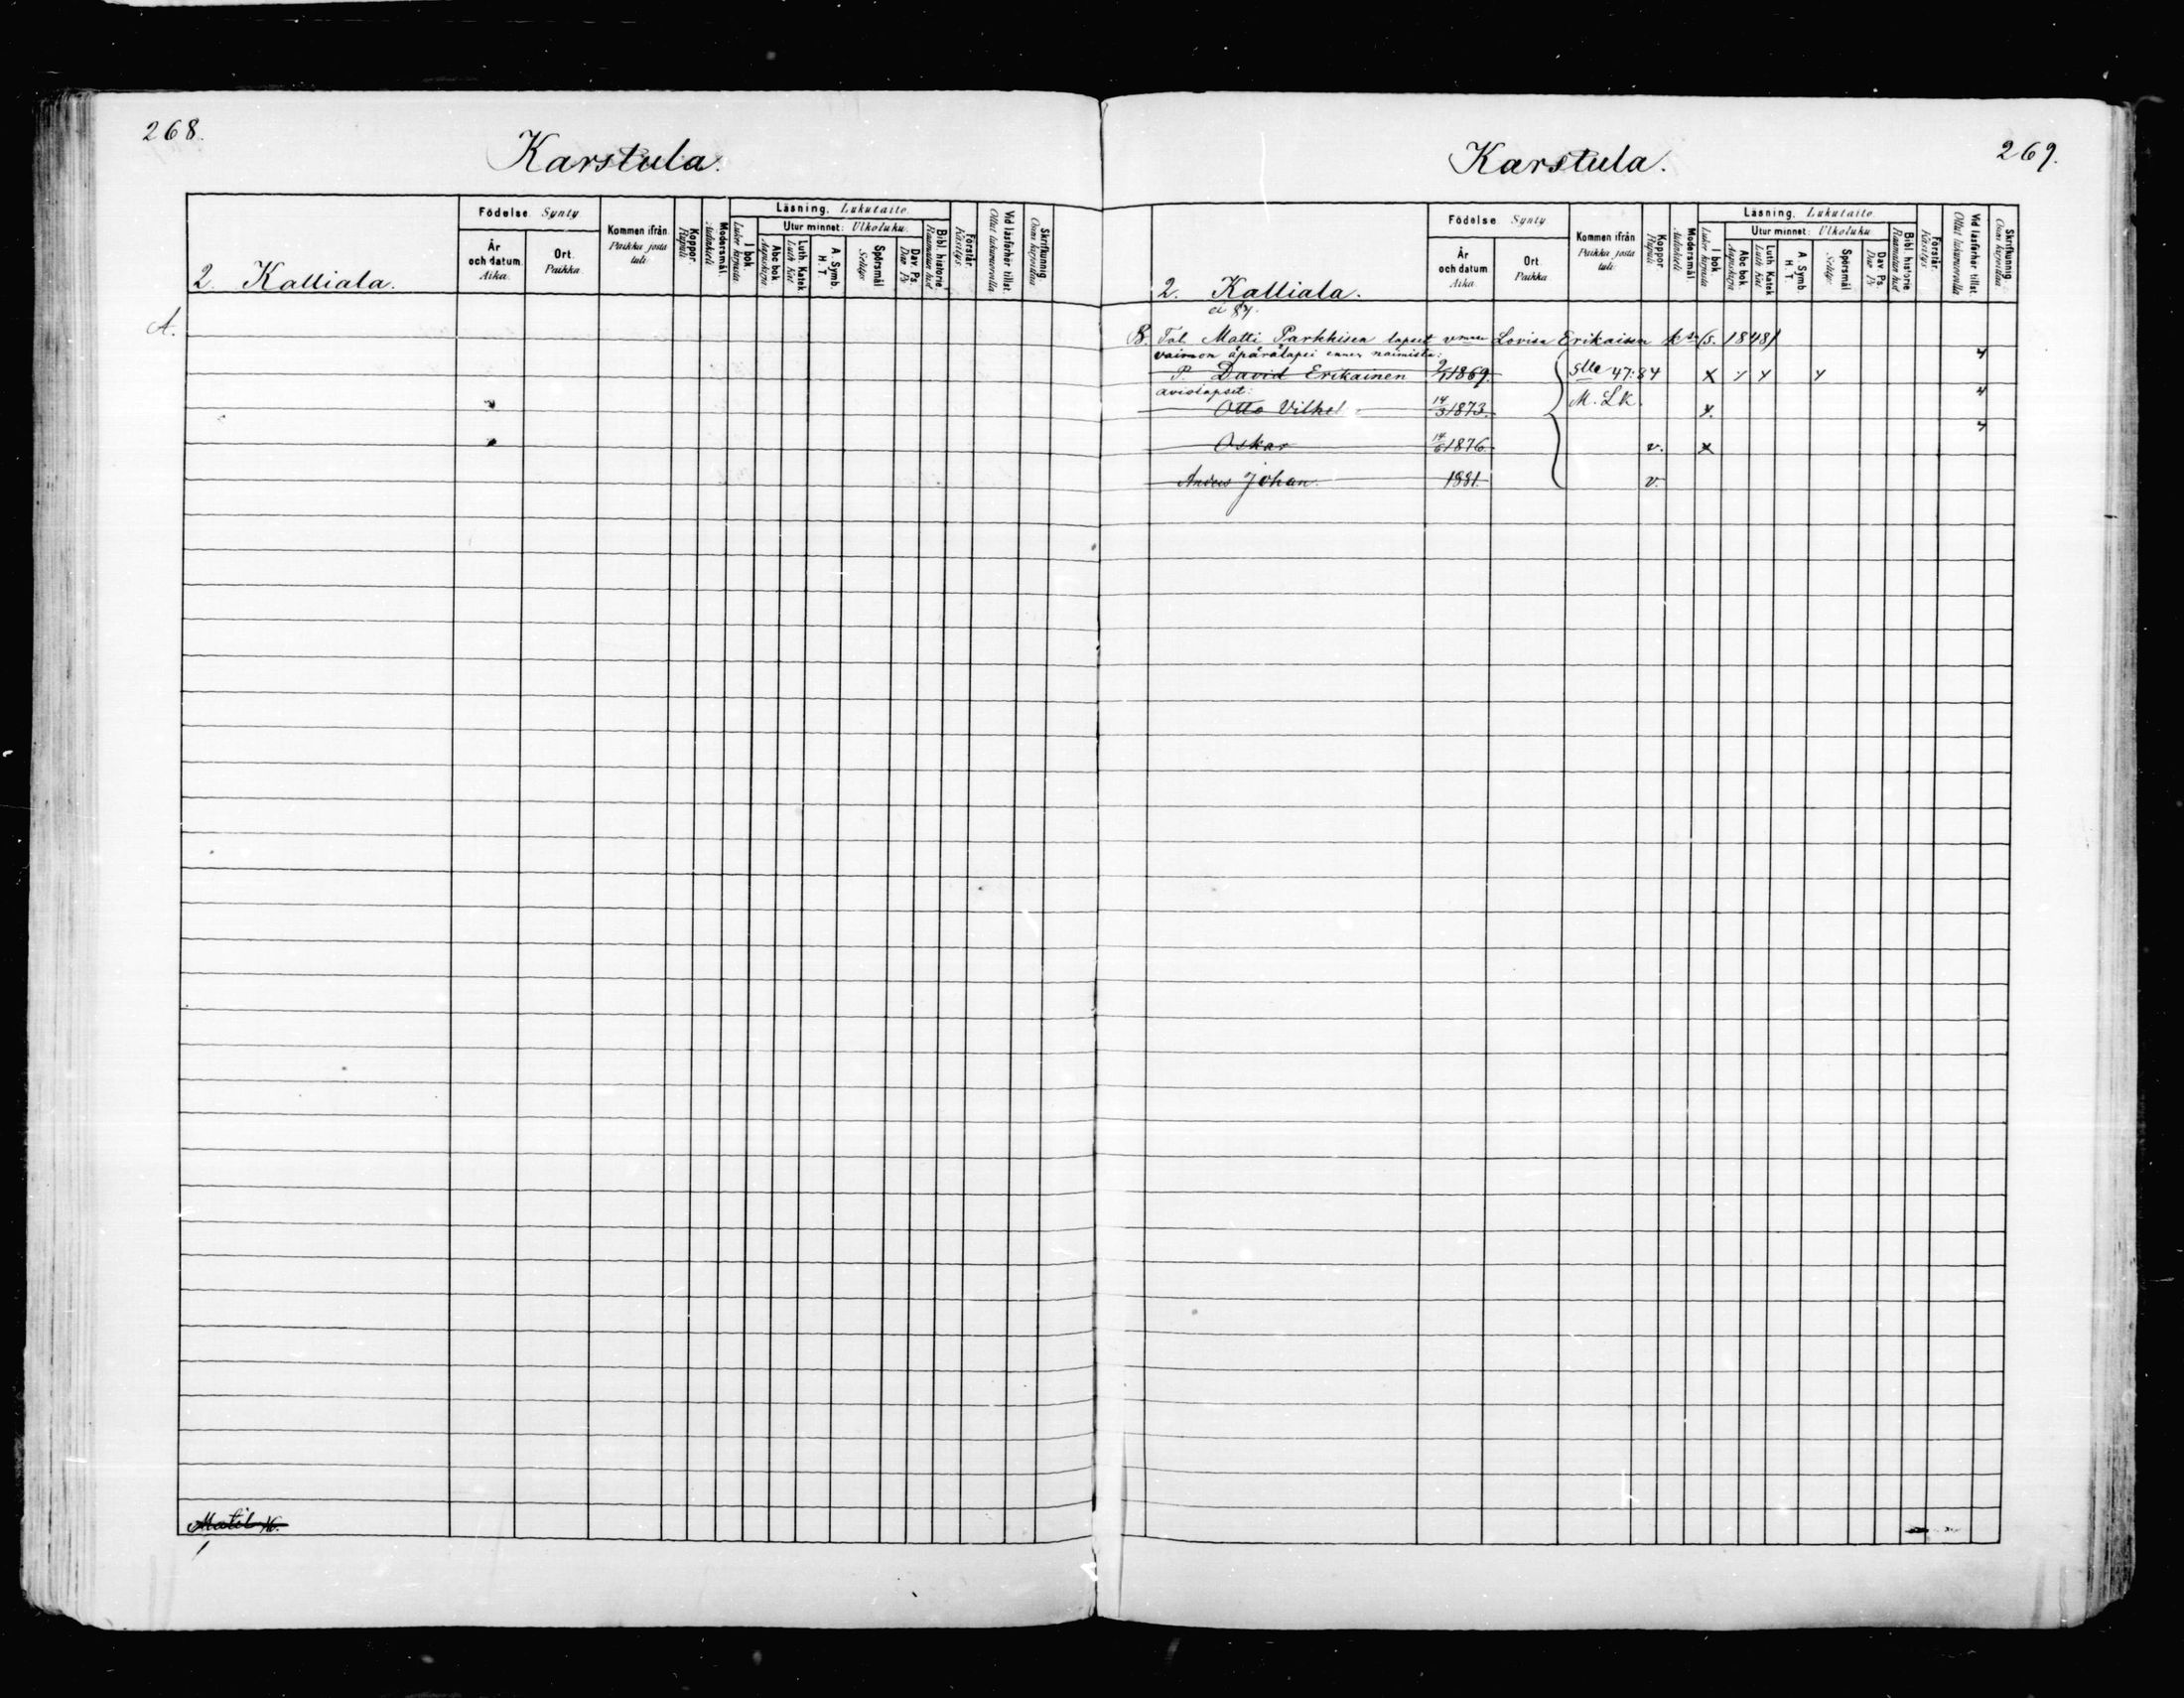 268.
Karstula.
Födelse. Synty
Kommen ifrån.
Paikka josta
tuli.
Koppor.
Rupuli
Modersmål.
Äidinkieli
Läsning. Lukutaito.
Utur minnet: Ulkoluku.
År
och datum.
Aika.
Ort.
Paikka.
I bok.
Lukee kirjasta
Abc bok.
Aapiskirja
Luth. Katek
Luth. Kat
A. Symb.
H. T.
Spörsmål
Selitys
Dav. Ps.
Dav. Ps
Bibl. historie
Raamatun hist
Förstår.
Käsitys.
Vid läsförhör tillst.
Ollut lukuvuorolla
Skrifkunnig
Osaa kirjoittaa
2. Kalliala.
A.
Matil K.
Karstula.
269.
Födelse. Synty
Kommen ifrån
Paikka josta
tuli.
Koppor
Rupuli
Modersmål.
Äidinkieli
Läsning. Lukutaito
Utur minnet: Ulkoluku
År
och datum
Aika.
Ort
Paikka
I bok.
Lukee kirjasta
Abc bok.
Aapiskirja
Luth. Katek
Luth. Kat
A. Symb.
H. T.
Spörsmål
Selitys
Dav. Ps.
Dav. Ps
Bibl. historie
Raamatun hist
Förstår.
Käsitys
Vid läsförhör tillst.
Ollut lukuvuorolla
Skrifkunnig
Osaa kirjoittaa
2. Kalliala.
ei 87.
B. Tal. Matti Parkkisen lapset Lovisa Erikaisen (s. 1848)
vaimon äpärälapsi ennen naimista: 4
P. David Erikainen 1869. 47:84 x x x x
aviolapset: M. Lk. 4
Otto Vilhel 14/3 1873. x.
4
Oskar 14/6 1876. v. x
Anders Johan. 1881. v.